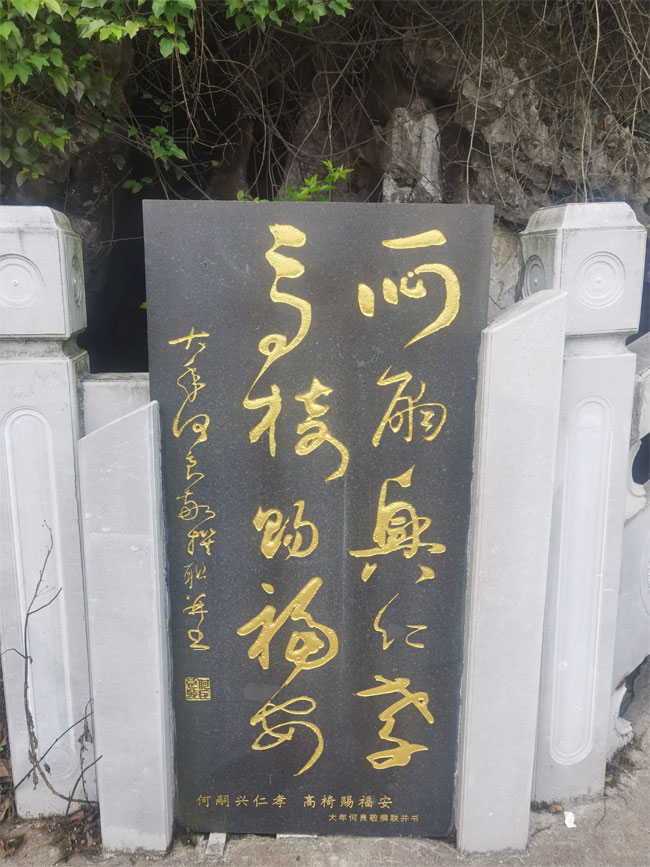 何嗣興仁孝
高椅賜福安
大年何良敬撰联并书
何嗣兴仁孝 高椅赐福安
大年何良敬撰联并书